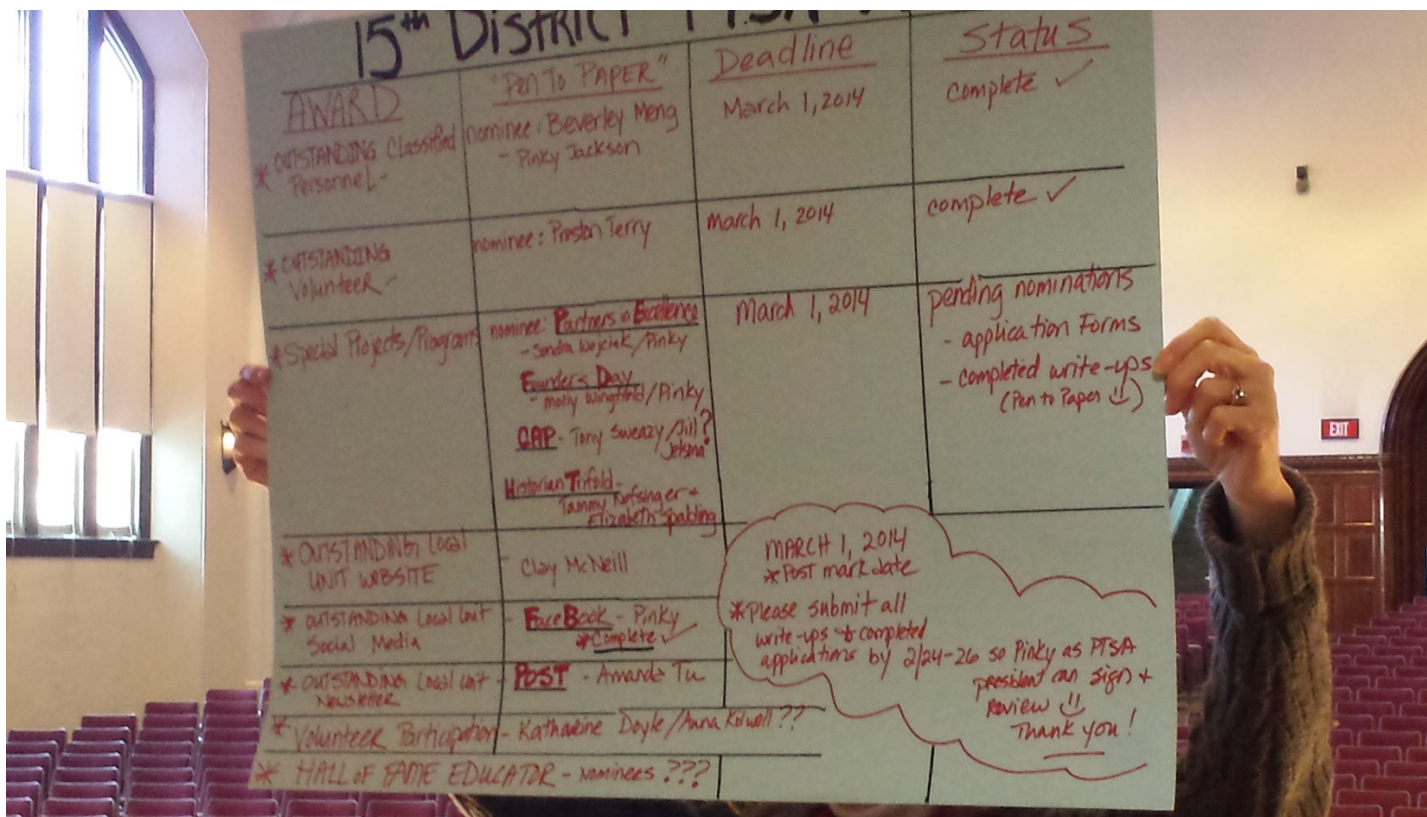 15th DISTRICT PTSA
AWARD
"Pen To PAPER"
Deadline
Status
* OUTSTANDING Classified
Personnel -
nominee: Beverley Meng
- Pinky Jackson
March 1, 2014
complete ✓
* OUTSTANDING
Volunteer -
nominee: Preston Terry
march 1, 2014
complete ✓
* Special Projects/Programs
nominee: Partners in Excellence
- Sandra Wojciek/Pinky
Founder's Day
- Molly Wingfield/Pinky
CAP - Tony Sweazy/Jill?
Jelsma
Historian Trifold -
Tammy Kofsinger +
Elizabeth Spalding
March 1, 2014
pending nominations
- application Forms
- completed write-ups
(Pen to Paper
* OUTSTANDING Local
UNIT WEBSITE
- Clay McNeill
* OUTSTANDING Local Unit
Social Media
- FaceBook - Pinky
* Complete ✓
* OUTSTANDING Local unit -
Newsletter
POST - Amanda Tu
* Volunteer Participation - Katharine Doyle/Anna Kolwell??
* HALL OF FAME EDUCATOR - Nominees ???
MARCH 1, 2014
* Post mark date
* Please submit all
write-ups & completed
applications by 2/24-26 so Pinky as PTSA
president can sign +
Review
Thank you!
EXIT